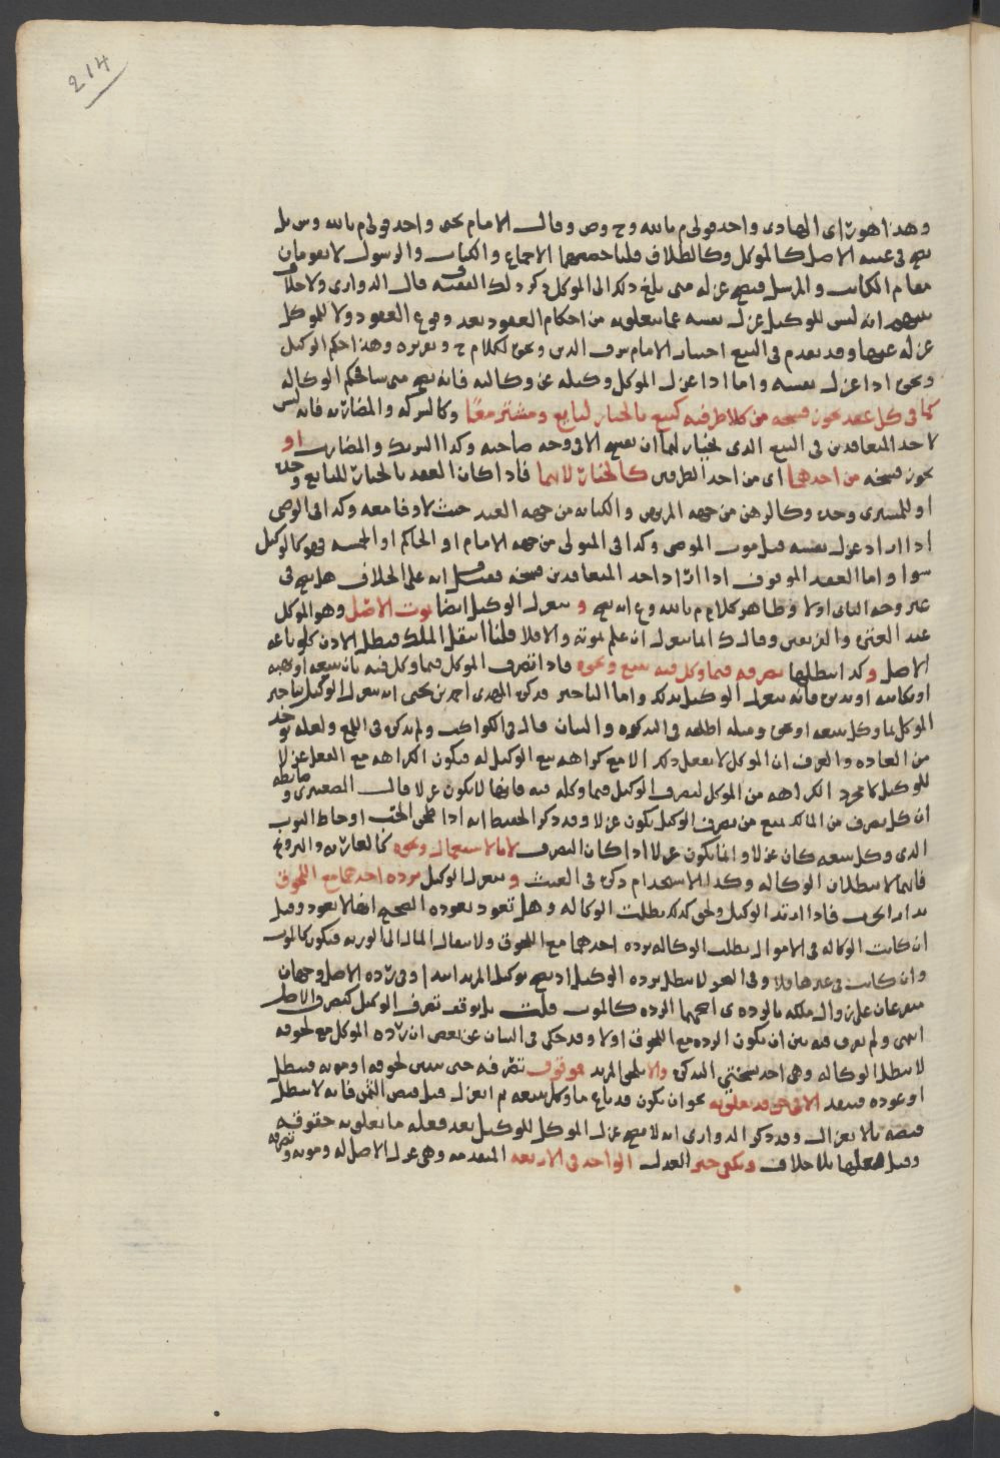 214
وهذا هو رأى الهادى واحد قولى م بالله وح وص وقال الامام يحى واحد قولى م بالله وس بل
يصح فى غيبه الاصل كالموكل وكالطلاق قلنا خصهما الاجماع والكتاب والرسول لا يقومان
مقام الكاتب والمرسل فيصح عزله متى بلغ ذلك الى الموكل ذكر ذلك الفقيه ف قال الدوارى ولا خلاف
بينهم انه ليس للوكيل عزل نفسه عما يتعلق به من احكام العقود بعد وقوع العقود ولا للموكل
عزله عنها وقد تقدم فى البيع اختيار الامام شرف الدين ونحو لكلام ح وتقريره وهذا حكم الوكيل
ونحوه اذا عزل نفسه واما اذا عزل الموكل وكيله عن وكالته فانه يصح متى شا فحكم الوكاله
كما فى كل عقد يجوز فسخه من كلا طرفيه كبيع بالخيار لبايع ومشتر معًا وكالشركه والمضاربه فانه ليس
لاحد المتعاقدين فى البيع الذى بخيار لهما ان يفسخ الا فى وجه صاحبه وكذا الشريك والمضارب او
يجوز فسخه من احدهما اى من احد الطرفين كالخيار لايهما فاذا كان العقد بالخيار للبايع وحده
او للمشترى وحده وكالرهن من جهه المرتهن والكتابه من جهه العبد حيث لا وفا معه وكذا فى الوصى
اذا اراد عزل نفسه قبل موت الموصى وكذا فى المتولى من جهه الامام او الحاكم او الحسبه فهو كالوكيل
سوا واما العقد الموقوف اذا اراد احد المتعاقدين فسخه فقيل انه على الخلاف هل يصح فى
غير وجه الثانى او لا وظاهر كلام م بالله وع انه يصح و ينعزل الوكيل ايضا بموت الاصل وهو الموكل
عند العتره والفريقين وقال ك انما ينعزل ان علم بموته والا فلا قلنا انتقل الملك فبطل الاذن كلو باعه
الاصل وكذا يبطلها تصرفه فيما وكل فيه ببيع ونحوه فاذا تصرف الموكل فيما وكل فيه بان يبيعه او يهبه
او يكاتبه او يدبر فانه ينعزل الوكيل بذلك واما التاجير فذكر المهدى احمد بن يحيى انه ينعزل الوكيل بتاجير
الموكل لما وكل ببيعه او نحوه ومثله اطلقه فى التذكره والبيان قال فى الكواكب ولم يذكره فى اللمع ولعله يوخذ
من العاده والعرف ان الموكل لا يفعل ذلك الا مع كراهه بيع الوكيل له فيكون الكراهه مع الفعل عزلا
للوكيل لا مجرد الكراهه من الموكل لتصرف الوكيل فيما وكله فيه فانها لا تكون عزلا قال الصعيترى وضابطه
ان كل تصرف من المالك يمنع من تصرف الوكيل يكون عزلا وقد ذكر الحفيظ انه اذا طحن الحب او خاط الثوب
الذى وكل ببيعه كان عزلا وانما يكون عزلا اذا كان التصرف لا بالاستعمال ونحوه كالعاريه والتزويج
فانهما لا يبطلان الوكاله وكذا الاستخدام ذكره فى الغيث و ينعزل الوكيل بردة احدهما مع اللحوق
بدار الحرب فاذا ارتد الوكيل ولحق كذلك بطلت الوكاله وهل تعود بعوده الصحيح انها لا تعود وقيل
ان كانت الوكاله فى الاموال بطلت الوكاله برده احدهما مع اللحوق ولانتقال المال الى الورثه فيكون كالموت
وان كانت فى غيرها فلا وفى البحر لا يبطل برده الوكيل اذ يصح توكيل المرتد ابتدا وفى رده الاصل وجهان
متفرعان على زوال ملكه بالرده ى اصحهما الرده كالموت قلت بل يوقف تصرف الوكيل كتصرف الاصل
انتهى ولم يفرق فيه بين ان تكون الرده مع اللحوق او لا وقد حكى فى البيان عن بعض ان رده الموكل مع لحوقه
لا تبطل الوكاله وهى احد نسختى التذكره والا يلحق المرتد موقوف تصرفه حتى يتبين لحوقه او موته فيبطل
او عوده فينعقد الا فى حق قد تعلق به نحو ان يكون قد باع ما وكل ببيعه ثم انعزل قبل قبض الثمن فانه لا يبطل
قبضه بالانعزال وقد ذكر الدوارى انه لا يصح عزل الموكل للوكيل بعد فعله ما تعلق به حقوقه
وقبل فعلها بلا خلاف ويكفى خبر العدل الواحد فى الاربعه المتقدمه وهى عزل الاصل له وموته وتصرفه